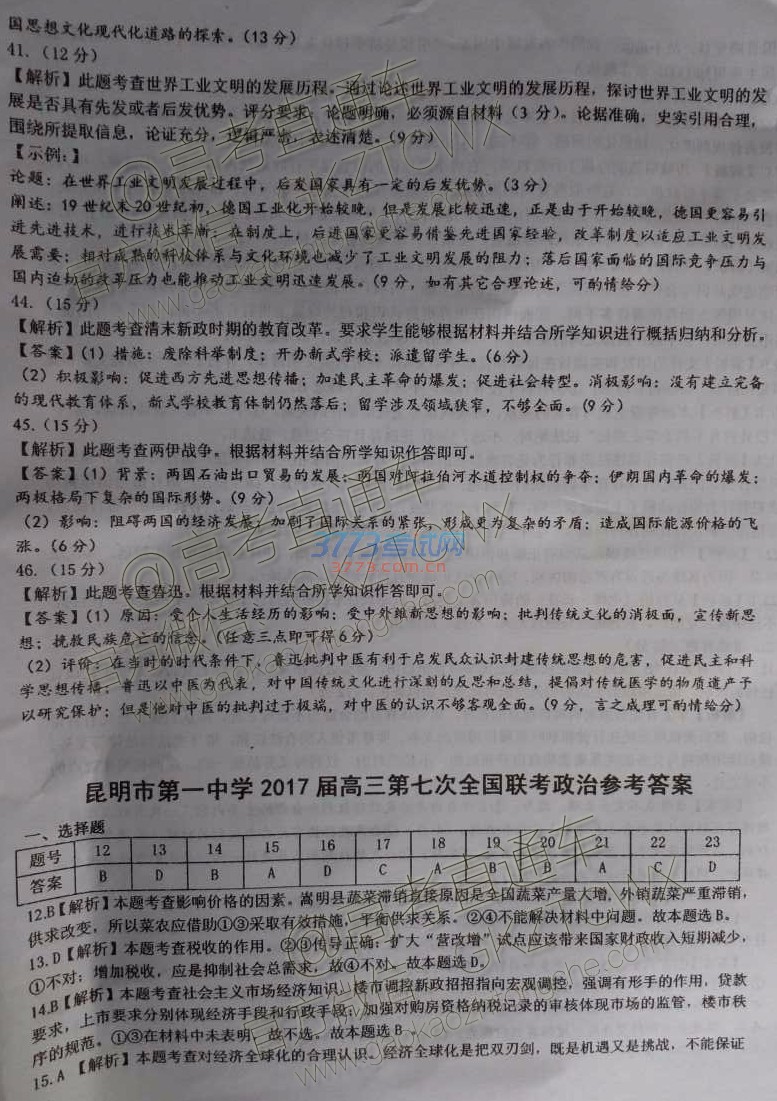 国思想文化现代化道路的探索。(13分)
41.(12分)
【解析】此题考查世界工业文明的发展历程。通过论述世界工业文明的发展历程，探讨世界工业文明的发
展是否具有先发或者后发优势。评分要求：论题明确，必须源自材料（3分）。论据准确，史实引用合理，
围绕所提取信息，论证充分，逻辑严密，表述清楚。(9分)
【示例：】
论题：在世界工业文明发展过程中，后发国家具有一定的后发优势。(3分)
阐述：19世纪末20世纪初，德国工业化开始较晚，但是发展比较迅速，正是由于开始较晚，德国更容易引
进先进技术，进行技术革新；在制度上，后进国家更容易借鉴先进国家经验，改革制度以适应工业文明发
展需要；相对成熟的科技体系与文化环境也减少了工业文明发展的阻力；落后国家面临的国际竞争压力与
国内迫切的改革压力也能推动工业文明迅速发展。(9分，如有其它合理论述，可酌情给分)
44.(15分)
【解析】此题考查清末新政时期的教育改革。要求学生能够根据材料并结合所学知识进行概括归纳和分析。
【答案】(1) 措施：废除科举制度；开办新式学校；派遣留学生。(6分)
(2) 积极影响：促进西方先进思想传播；加速民主革命的爆发；促进社会转型。消极影响：没有建立完备
的现代教育体系，新式学校教育体制仍然落后；留学涉及领域狭窄，不够全面。(9分)
45.(15分)
【解析】此题考查两伊战争。根据材料并结合所学知识作答即可。
【答案】(1) 背景：两国石油出口贸易的发展；两国对阿拉伯河水道控制权的争夺；伊朗国内革命的爆发；
两极格局下复杂的国际形势。(9分)
(2) 影响：阻碍两国的经济发展；加剧了国际关系的紧张，形成更为复杂的矛盾；造成国际能源价格的飞
涨。(6分)
46.(15分)
【解析】此题考查鲁迅。根据材料并结合所学知识作答即可。
【答案】(1) 原因：受个人生活经历的影响；受中外维新思想的影响；批判传统文化的消极面，宣传新思
想；挽救民族危亡的信念。(任意三点即可得6分)
(2) 评价：在当时的时代条件下，鲁迅批判中医有利于启发民众认识封建传统思想的危害，促进民主和科
学思想传播；鲁迅以中医为代表，对中国传统文化进行深刻的反思和总结，提倡对传统医学的物质遗产予
以研究保护；但是他对中医的批判过于极端，对中医的认识不够客观全面。(9分，言之成理可酌情给分)
昆明市第一中学2017届高三第七次全国联考政治参考答案
一、选择题
题号 12 13 14 15 16 17 18 19 20 21 22 23
答案 B D B A D C A B B A C D
12.B【解析】本题考查影响价格的因素。嵩明县蔬菜滞销直接原因是全国蔬菜产量大增，外销蔬菜严重滞销，
供求改变，所以菜农应借助①③采取有效措施，平衡供求关系。②④不能解决材料中问题。故本题选B。
13.D【解析】本题考查税收的作用。②③传导正确；扩大“营改增”试点应该带来国家财政收入短期减少，
①不对；增加税收，应是抑制社会总需求，故④不对。故本题选D。
14.B【解析】本题考查社会主义市场经济知识。楼市调控新政招招指向宏观调控，强调有形手的作用，贷款
要求，上市要求分别体现经济手段和行政手段；加强对购房资格纳税记录的审核体现市场的监管，楼市秩
序的规范。①③在材料中未表明，故不选。故本题选B。
15.A 【解析】本题考查对经济全球化的合理认识。经济全球化是把双刃剑，既是机遇又是挑战，不能保证
@高考直通车
@高考直通车
3773考试网
3773.com.cn